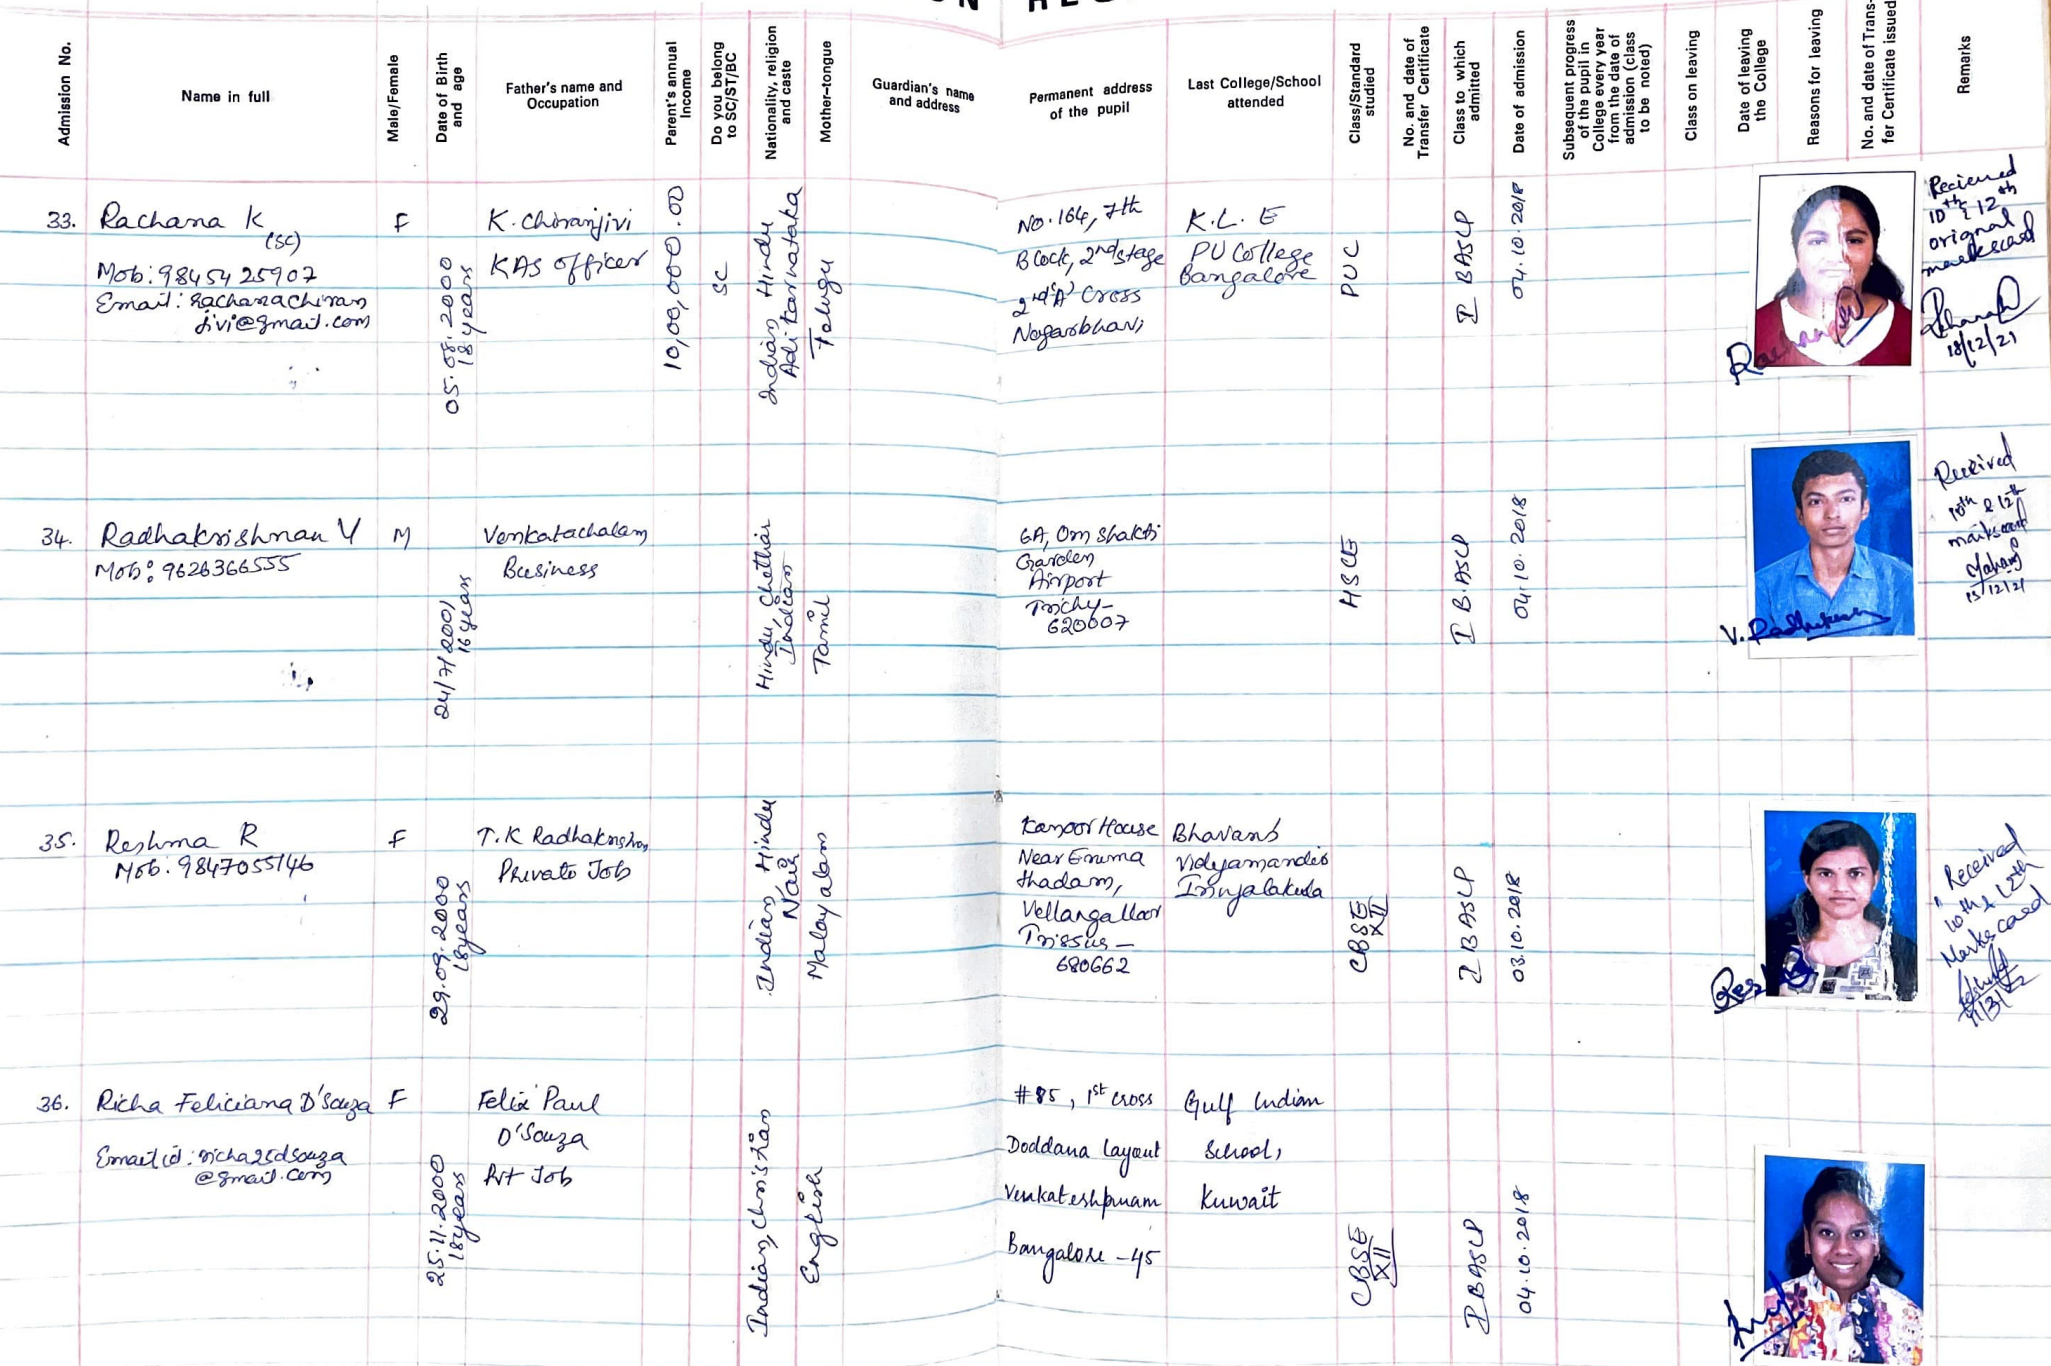 Admission No.
Name in full
Male/Female
Date of Birth
and age
Father's name and
Occupation
Parent's annual
Income
Do you belong
to SC/ST/BC
Nationality, religion
and caste
Mother-tongue
Guardian's name
and address
Permanent address
of the pupil
Last College/School
attended
Class/Standard
studied
No. and date of
Transfer Certificate
Class to which
admitted
Date of admission
Subsequent progress
of the pupil in
College every year
from the date of
admission (class
to be noted)
Class on leaving
Date of leaving
the College
Reasons for leaving
No. and date of Trans-
fer Certificate issued
Remarks
33.
Rachana K
(SC)
Mob: 9845425907
Email: rachanachiran
jivi@gmail.com
F
05.08.2000
18 years
K. Chiranjivi
KAS officer
10,00,000.00
SC
Indian, Hindu
Adi Karnataka
Telugu
No. 164, 7th
Block, 2nd stage
2nd 'A' Cross
Nagarbhavi
K.L.E
PU College
Bangalore
PUC
I BASLP
04.10.2018
Recieved
10th & 12th
orignal
markscard
18/12/21
34.
Radhakrishnan V
Mob: 9626366555
M
24/7/2001
16 years
Venkatachalam
Business
Hindu, Chettiar
Indian
Tamil
6A, Om Shakti
Garden
Airport
Trichy-
620007
HSCE
I B.ASLP
04.10.2018
V. Radhakrishnan
Received
10th & 12th
marks card
13/12/21
35.
Reshma R
Mob: 9847055146
F
29.09.2000
18 years
T.K Radhakrishnan
Private Job
Indian, Hindu
Nair
Malayalam
Kanoor House
Near Enuma
thadam,
Vellangalloor
Trissur -
680662
Bhavans
Vidyamandir
Irinjalakuda
CBSE
XII
I BASLP
03.10.2018
Received
10th & 12th
Marks card
36.
Richa Feliciana D'Souza
Email id: richa25dsouza
@gmail.com
F
25.11.2000
18 years
Felix Paul
D'Souza
Pvt Job
Indian, Christian
English
#85, 1st cross
Doddana layout
Venkateshpuram
Bangalore - 45
Gulf Indian
School,
Kuwait
CBSE
XII
I BASLP
04.10.2018